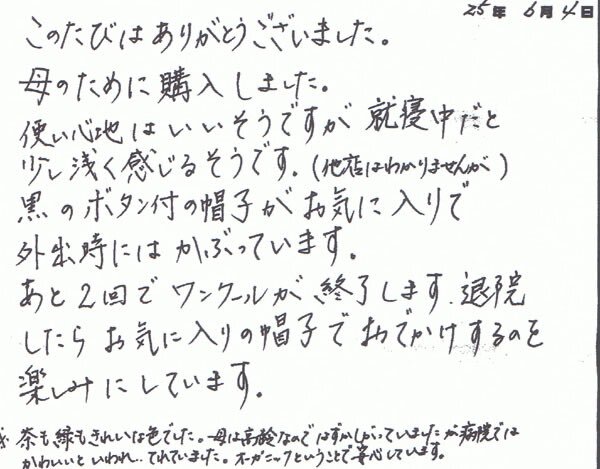 25年 6月 4日
このたびはありがとうございました。
母のために購入しました。
使い心地はいいそうですが 就寝中だと
少し浅く感じるそうです。(他店はわかりませんが)
黒のボタン付の帽子がお気に入りで
外出時にはかぶっています。
あと2回でワンクールが終了します。退院
したらお気に入りの帽子でおでかけするのを
楽しみにしています。
※茶も緑もきれいな色でした。母は高齢なのではずかしがっていましたが病院では
かわいいといわれ…てれていました。オーガニックということで安心しています。